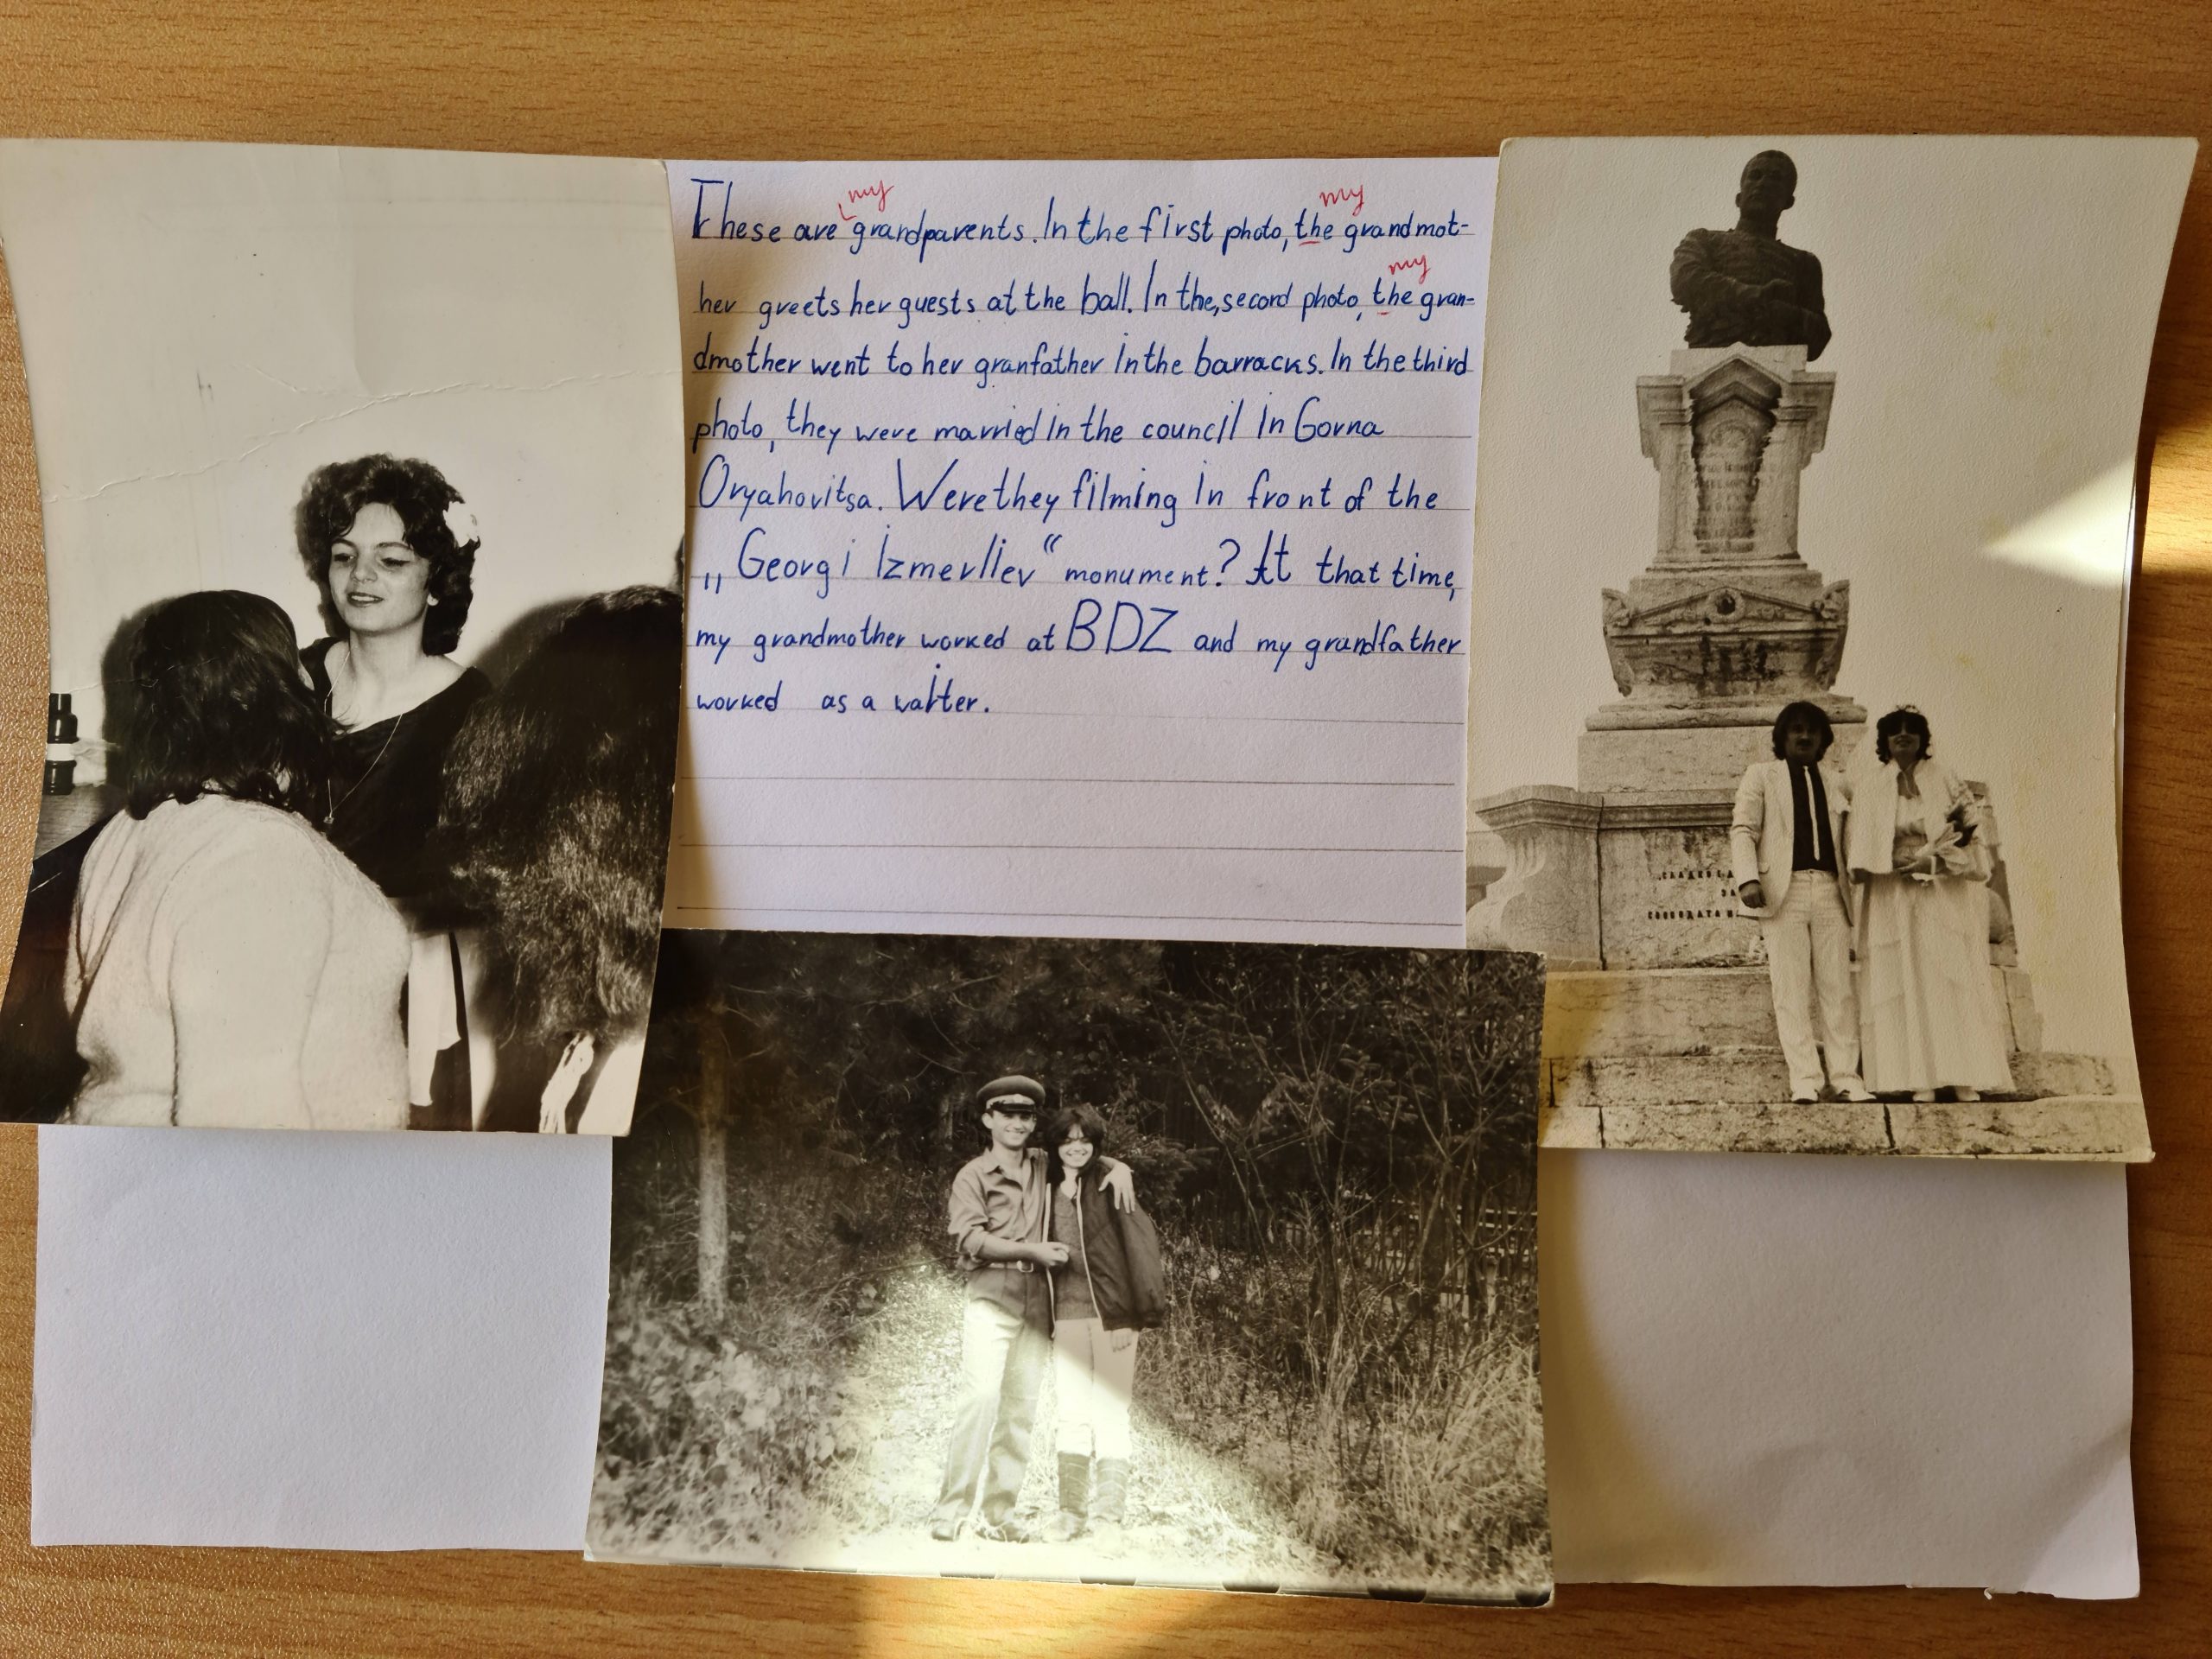 my my
These are grandparents. In the first photo, the grandmot-
my
her greets her guests at the ball. In the, second photo, the gran-
dmother went to her granfather in the barracks. In the third
photo, they were married in the council in Gorna
Oryahovitsa. Were they filming in front of the
„Georgi Izmerliev“ monument? At that time,
my grandmother worked at BDZ and my grandfather
worked as a waiter.
ЗА
СВОБОДАТА И